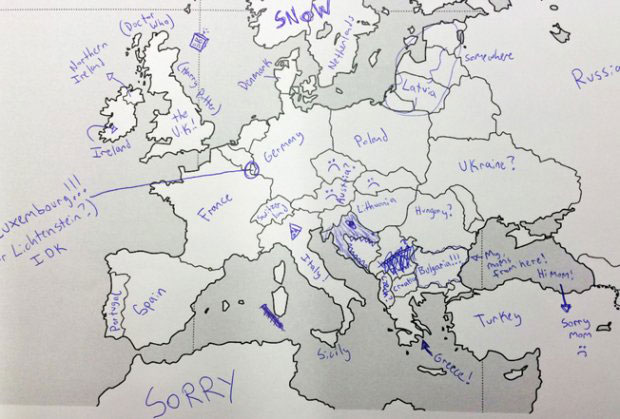 SNOW
(Doctor
Who)
Northern
Ireland
(Harry Potter)
the
UK!
Ireland
Denmark
Netherlands
somewhere
Latvia
Russia
Germany
Poland
Ukraine?
Luxembourg!!!
or Lichtenstein?)
IDK
France
Switzer
land
Austria?
Lithuania
Hungary?
Italy!
Bulgaria!!!
My
mom's
from here!
Hi Mom!
Sorry
mom
:(
Croatia
Portugal
Spain
Turkey
Sicily
Greece!
SORRY